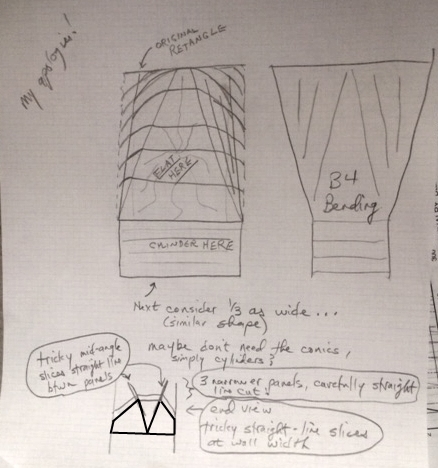 My apologies!
ORIGINAL
RETANGLE
FLAT
HERE
B4
Bending
CYLINDER HERE
Next consider 1/3 as wide...
(similar shape)
maybe don't need the conics,
simply cylinders?
tricky mid-angle
slices straight line
btwn panels
3 narrower panels, carefully straight
line cut!
end view
tricky straight-line slices
at wall width